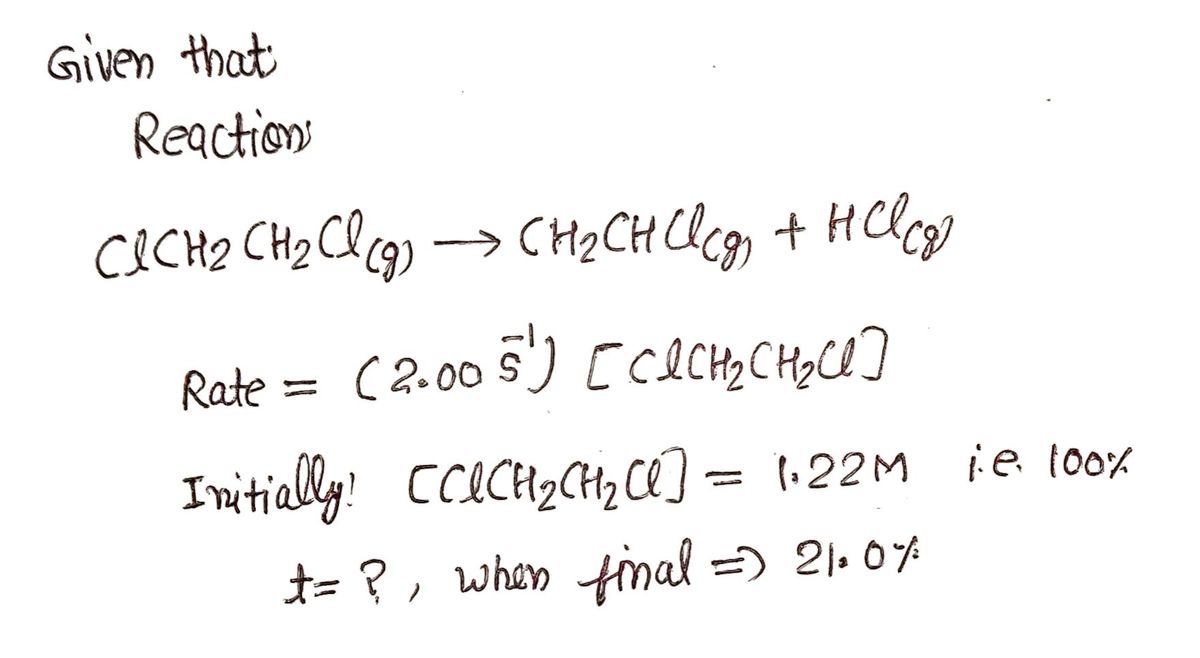 Given that:
Reaction:
ClCH₂CH₂Cl(g) → CH₂CHCl(g) + HCl(g)
Rate = (2.00 s⁻¹) [ClCH₂CH₂Cl]
Initially! [ClCH₂CH₂Cl] = 1.22M i.e. 100%
t= ?, when final ⇒ 21.0%